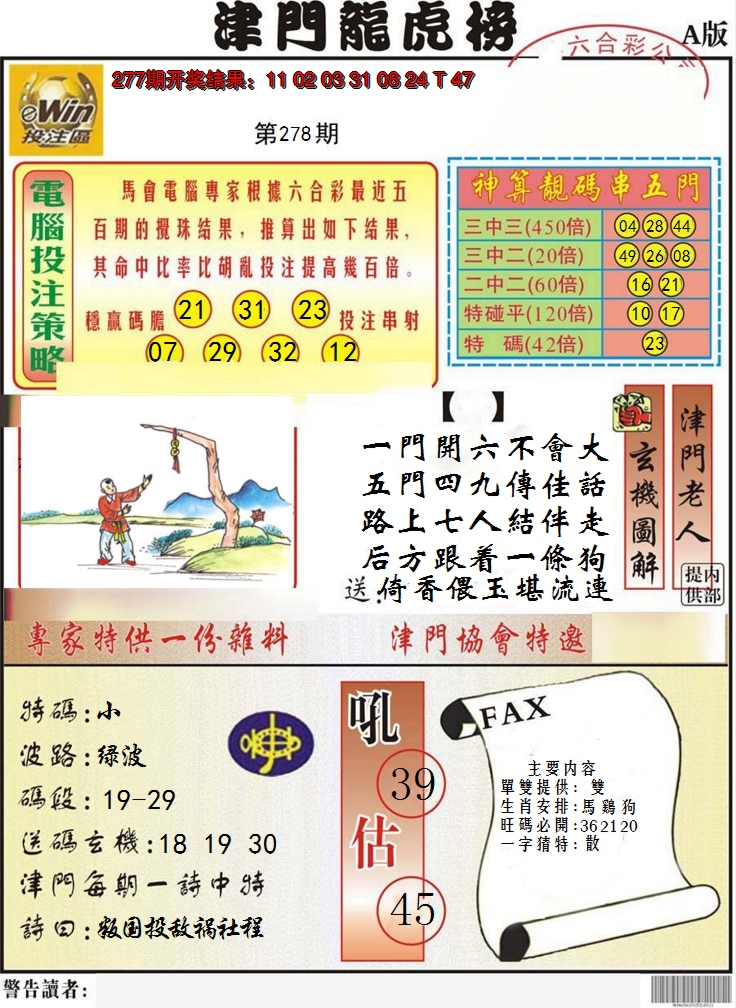 津門龍虎榜
A版
六合彩公
277期开奖结果：11 02 03 31 08 24 T 47
eWin
投注區
第278期
電腦投注策略
馬會電腦專家根據六合彩最近五
百期的攪珠结果，推算出如下结果，
其命中比率比胡亂投注提高幾百倍。
穩赢碼膽 21 31 23 投注串射
07 29 32 12
神算靚碼串五門
三中三(450倍) 04 28 44
三中二(20倍) 49 26 08
二中二(60倍) 16 21
特碰平(120倍) 10 17
特 碼(42倍) 23
【 】
一門開六不會大
五門四九傳佳話
路上七人結伴走
后方跟着一條狗
送:倚香偎玉堪流連
玄機圖解
津門老人
内部提供
專家特供一份雜料
津門協會特邀
特碼:小
波路:绿波
碼段:19-29
送碼玄機:18 19 30
津門每期一詩中特
詩曰:叛国投敌祸社程
吼
39
估
45
FAX
主要内容
單雙提供：雙
生肖安排:馬鷄狗
旺碼必開:362120
一字猜特:散
警告讀者: